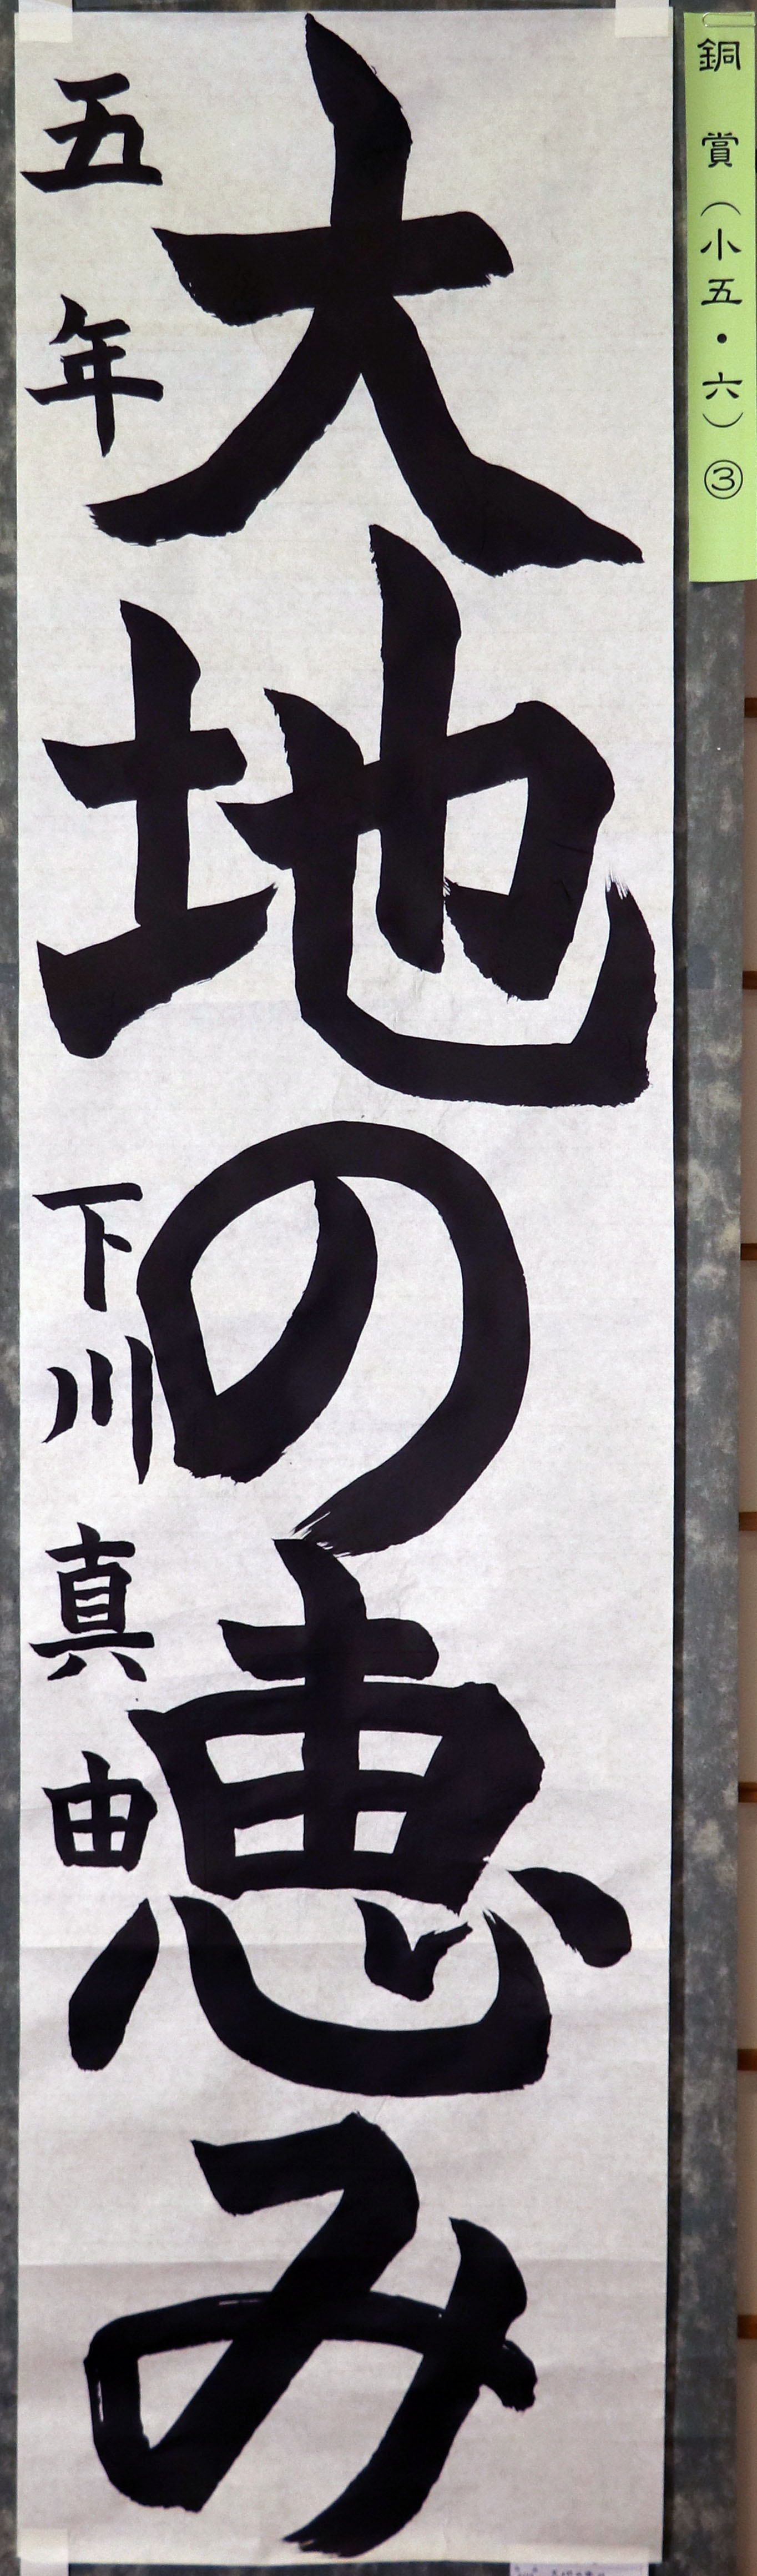 銅賞（小五・六）③
大地の恵み
五年 下川真由